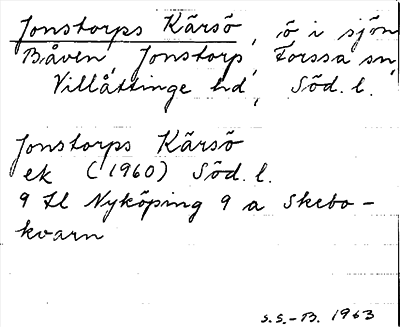 Jonstorps Kärsö, ö i sjön
Båven, Jonstorp, Forssa sn,
Villåttinge hd, Söd. l.
Jonstorps Kärsö
ek (1960) Söd. l.
9 H Nyköping 9 a Skebo-
kvarn
S.S.-B. 1963